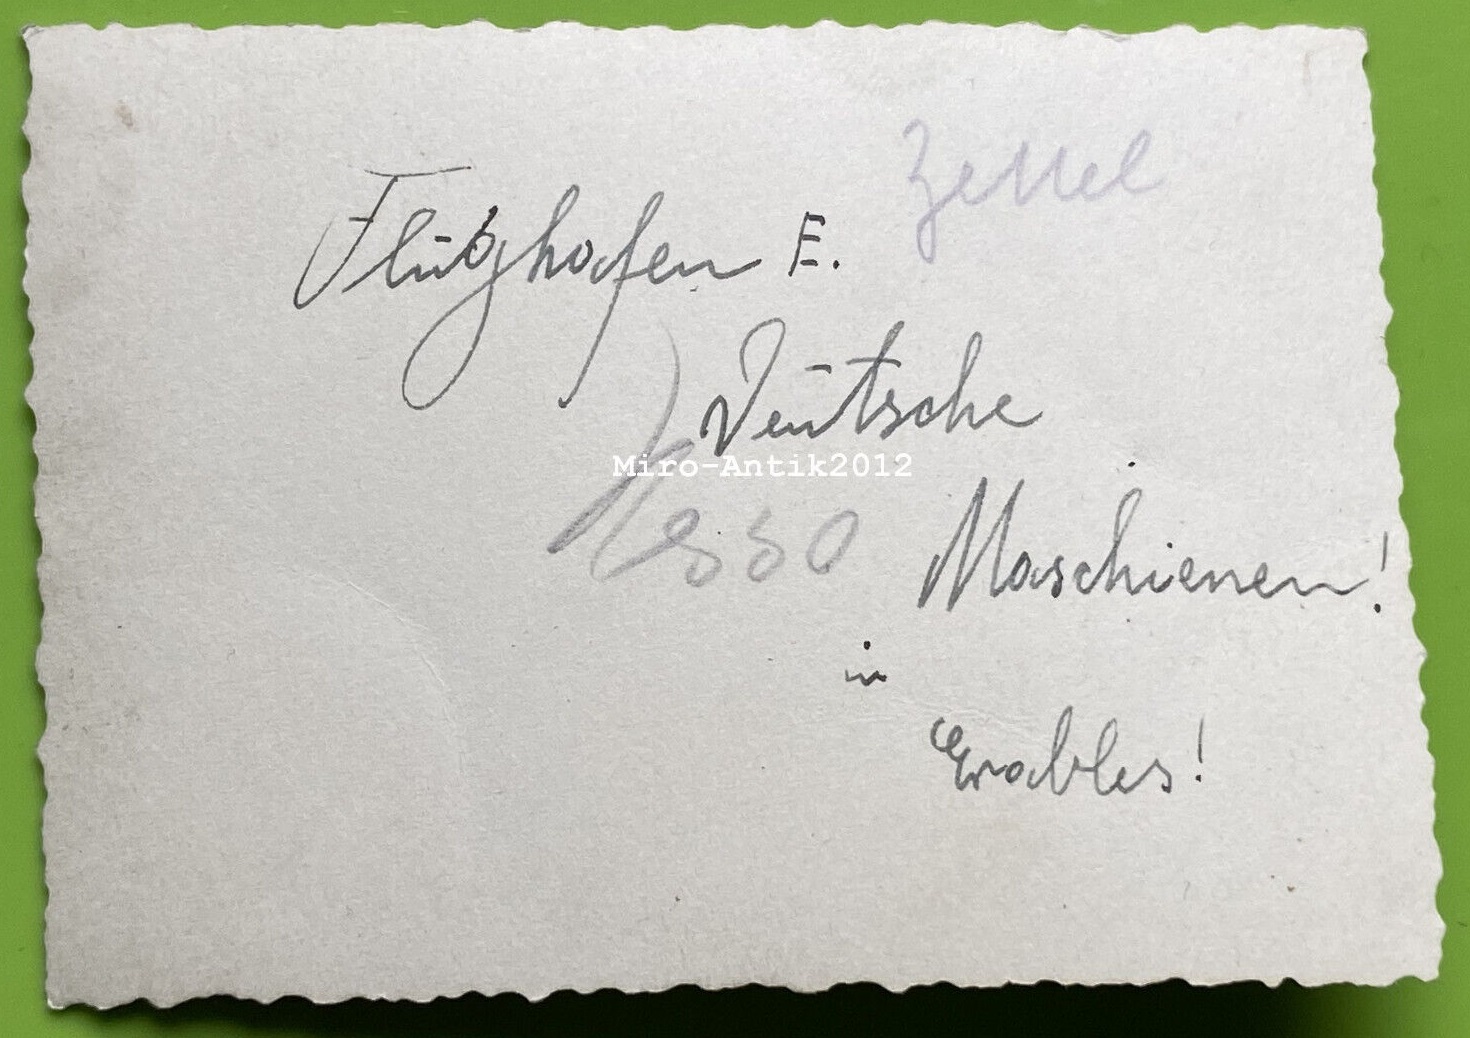 Zettel
Flughafen E.
Deutsche
Miro-Antik2012
Maschienen!
in
Erables!